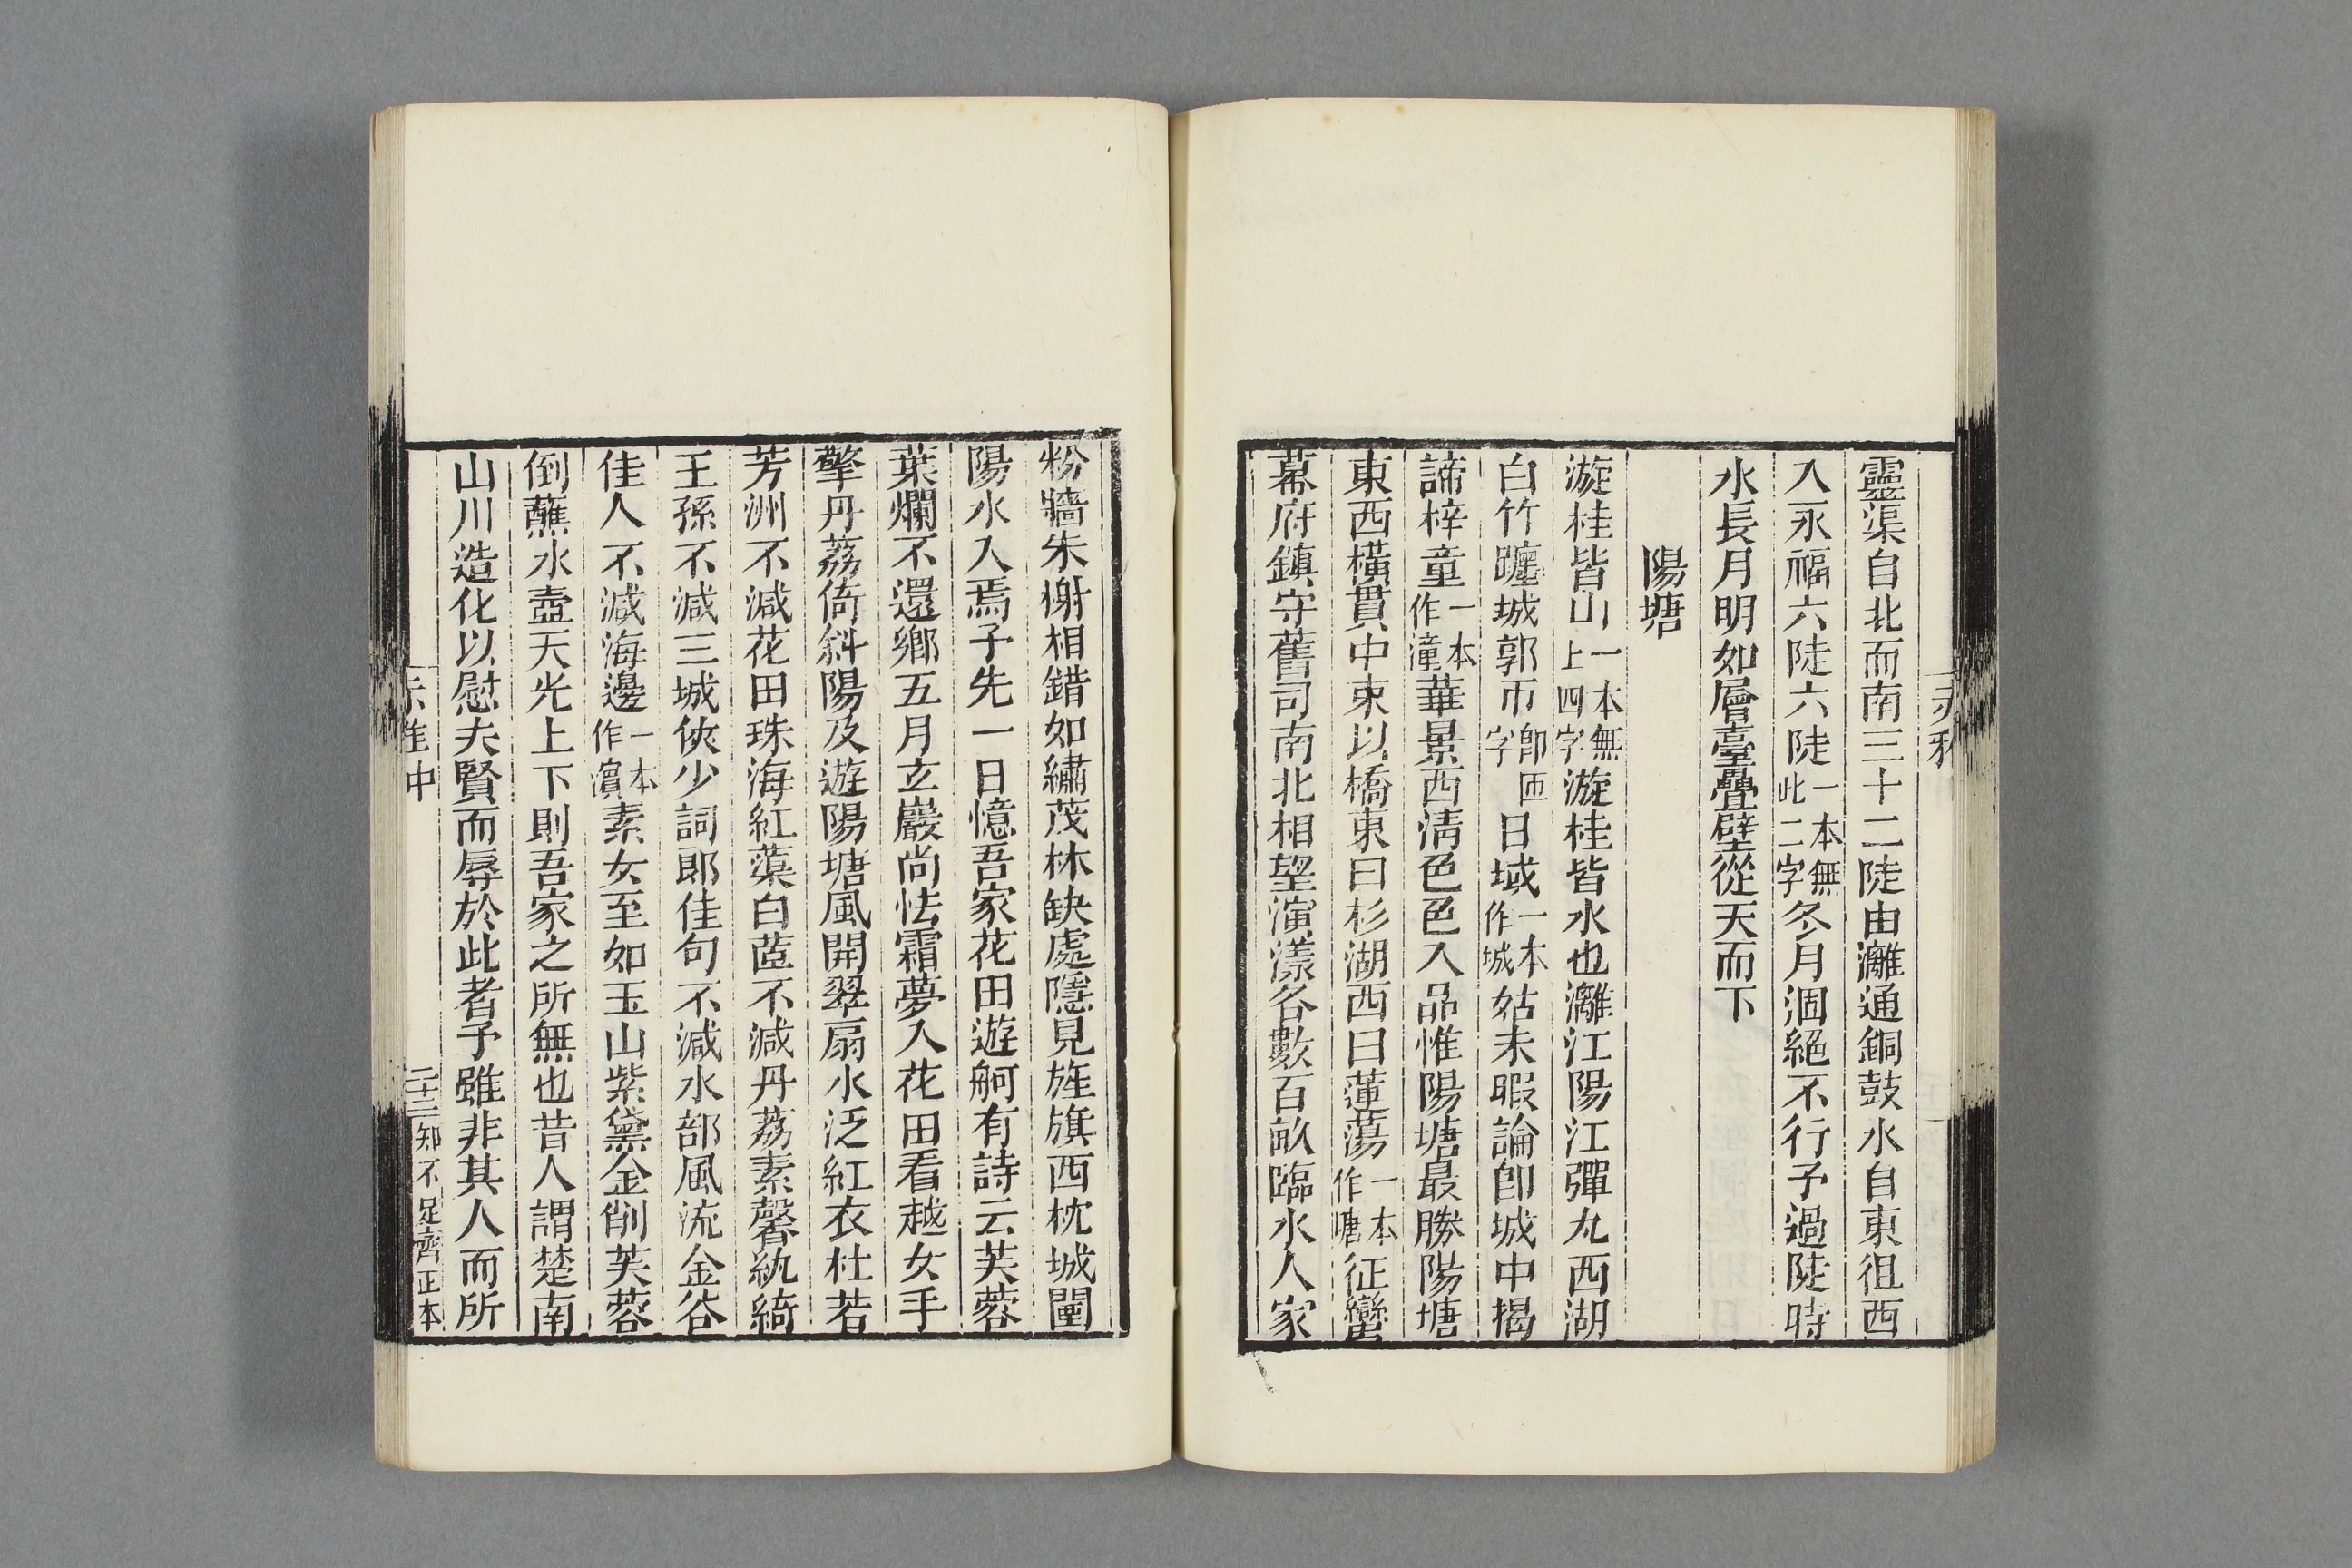 靈渠自北而南三十二陡由灕通銅鼓水自東徂西
入永福六陡六陡一本無此二字冬月涸絕不行予過陡時
水長月明如層臺疊壁從天而下
陽塘
漩桂皆山一本無上四字漩桂皆水也灕江陽江彈丸西湖
白竹躔城郭帀卽匝字日域一本作城姑未暇論卽城中揭
諦梓童一本作潼華景西清色色入品惟陽塘最勝陽塘
東西橫貫中束以橋東曰杉湖西曰蓮蕩一本作塘征蠻
幕府鎮守舊司南北相望演漾各數百畝臨水人家
粉牆朱榭相錯如繡茂林缺處隱見旌旗西枕城闉
陽水入焉子先一日憶吾家花田遊舸有詩云芙蓉
葉爛不還鄉五月玄巖尚怯霜夢入花田看越女手
擎丹荔倚斜陽及遊陽塘風開翠扇水泛紅衣杜若
芳洲不減花田珠海紅蕖白蓲不減丹荔素馨紈綺
王孫不減三城俠少詞郎佳句不減水部風流金谷
佳人不減海邊一本作濵素女至如玉山紫黛金削芙蓉
倒蘸水壺天光上下則吾家之所無也昔人謂楚南
山川造化以慰夫賢而辱於此者予雖非其人而所
赤雅中
二十二
知不足齋正本